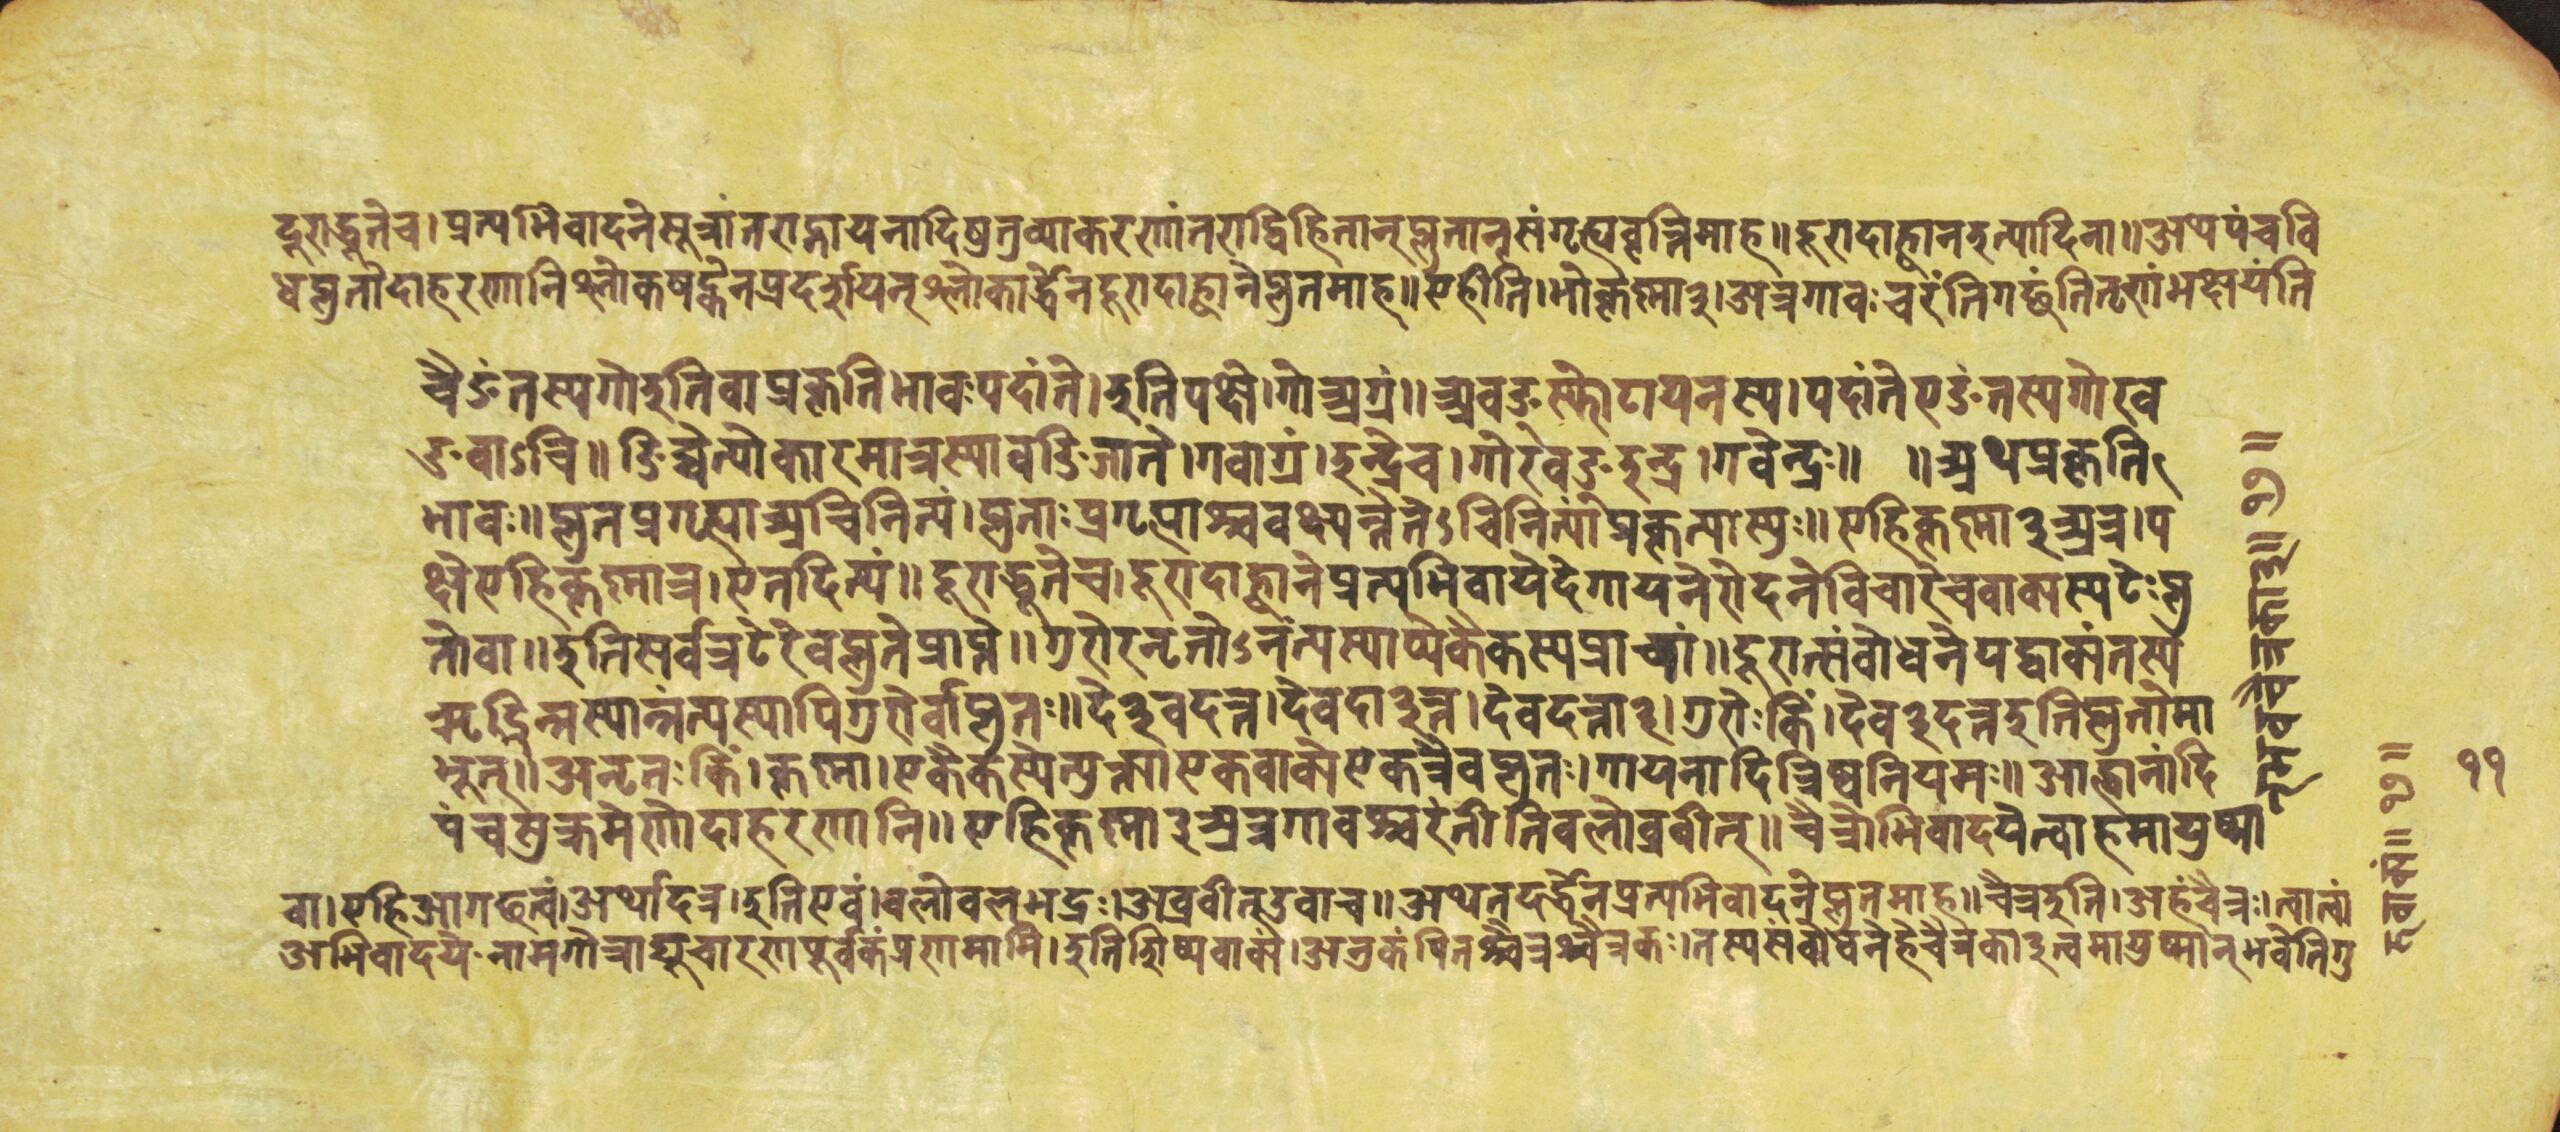 दूराद्धूतेच।प्रत्यभिवादनेसूत्रांतराद्गायनादिषुतुव्याकरणांतराद्विहितान्प्लुतान्संगृह्यवृत्तिमाह॥दूरादाह्वानइत्यादिना॥अथपंचवि
धप्लुतोदाहरणानिश्लोकषट्केनप्रदर्शयन्श्लोकार्द्धेनदूरादाह्वानेप्लुतमाह॥एहीति।भोकृष्णा३।अत्रगावःचरंतिगछंतितृणंभक्षयंति
चैङंतस्यगोइतिवाप्रकृतिभावःपदांते।इतिपक्षे।गोअग्रं॥अवङ्स्फोटायनस्य।पदांतेएङंतस्यगोरव
ङ्वाऽचि॥ङिच्चेत्योकारमात्रस्यावङिजाते।गवाग्रं।इन्द्रेच।गोरवङ्इन्द्रे।गवेन्द्रः॥ ॥अथप्रकृति
भावः॥प्लुतप्रगृह्याअचिनित्यं।प्लुताःप्रगृह्याश्चवक्ष्यन्तेतेऽचिनित्यंप्रकृत्यास्युः॥एहिकृष्णा३अत्र।प
क्षेएहिकृष्णात्र।एतदित्यं॥दूराद्धूतेच।दूरादाह्वानेप्रत्यभिवायेदेगायनेरोदनेविचारेचवाक्यस्यटेःप्लु
तोवा॥इतिसर्वत्रटेरेवप्लुतेप्राप्ते॥गुरोरनृतोऽनंत्यस्याप्येकैकस्यप्राचां॥दूरात्संबोधनेयद्वाक्यंतस्ये
ऋद्भिन्नस्यानंत्यस्यापिगुरोर्वाप्लुतः॥दे३वदत्त।देवदा३त्त।देवदत्ता३।गुरोःकिं।देव३दत्तइतिप्लुतोमा
भूत्॥अनृतःकिं।कृष्णा।एकैकस्येत्युक्त्याएकवाक्येएकत्रैवप्लुतः।गायनादित्रिष्वनियमः॥आह्वानादि
पंचसुक्रमेणोदाहरणानि॥एहिकृष्णा३अत्रगावश्चरंतीतिबलोब्रवीत्॥चैत्रोभिवादयेत्वाहमायुष्मा
वा।एहिआगछत्वं।अर्थादत्र।इतिएवं।बलोबलभद्रः।अब्रवीत्उवाच॥अथतदर्द्धेनप्रत्यभिवादनेप्लुतमाह॥चैत्रइति।अहंचैत्रः।त्वात्वां
अभिवादये।नामगोत्राद्युचारणपूर्वकंप्रणमामि।इतिशिष्यवाक्यं।अनुकंपितश्चैत्रश्चैत्रकः।तस्यसंबोधनेहेचैत्रका३त्वमायुष्मान्भवेतिगु
११